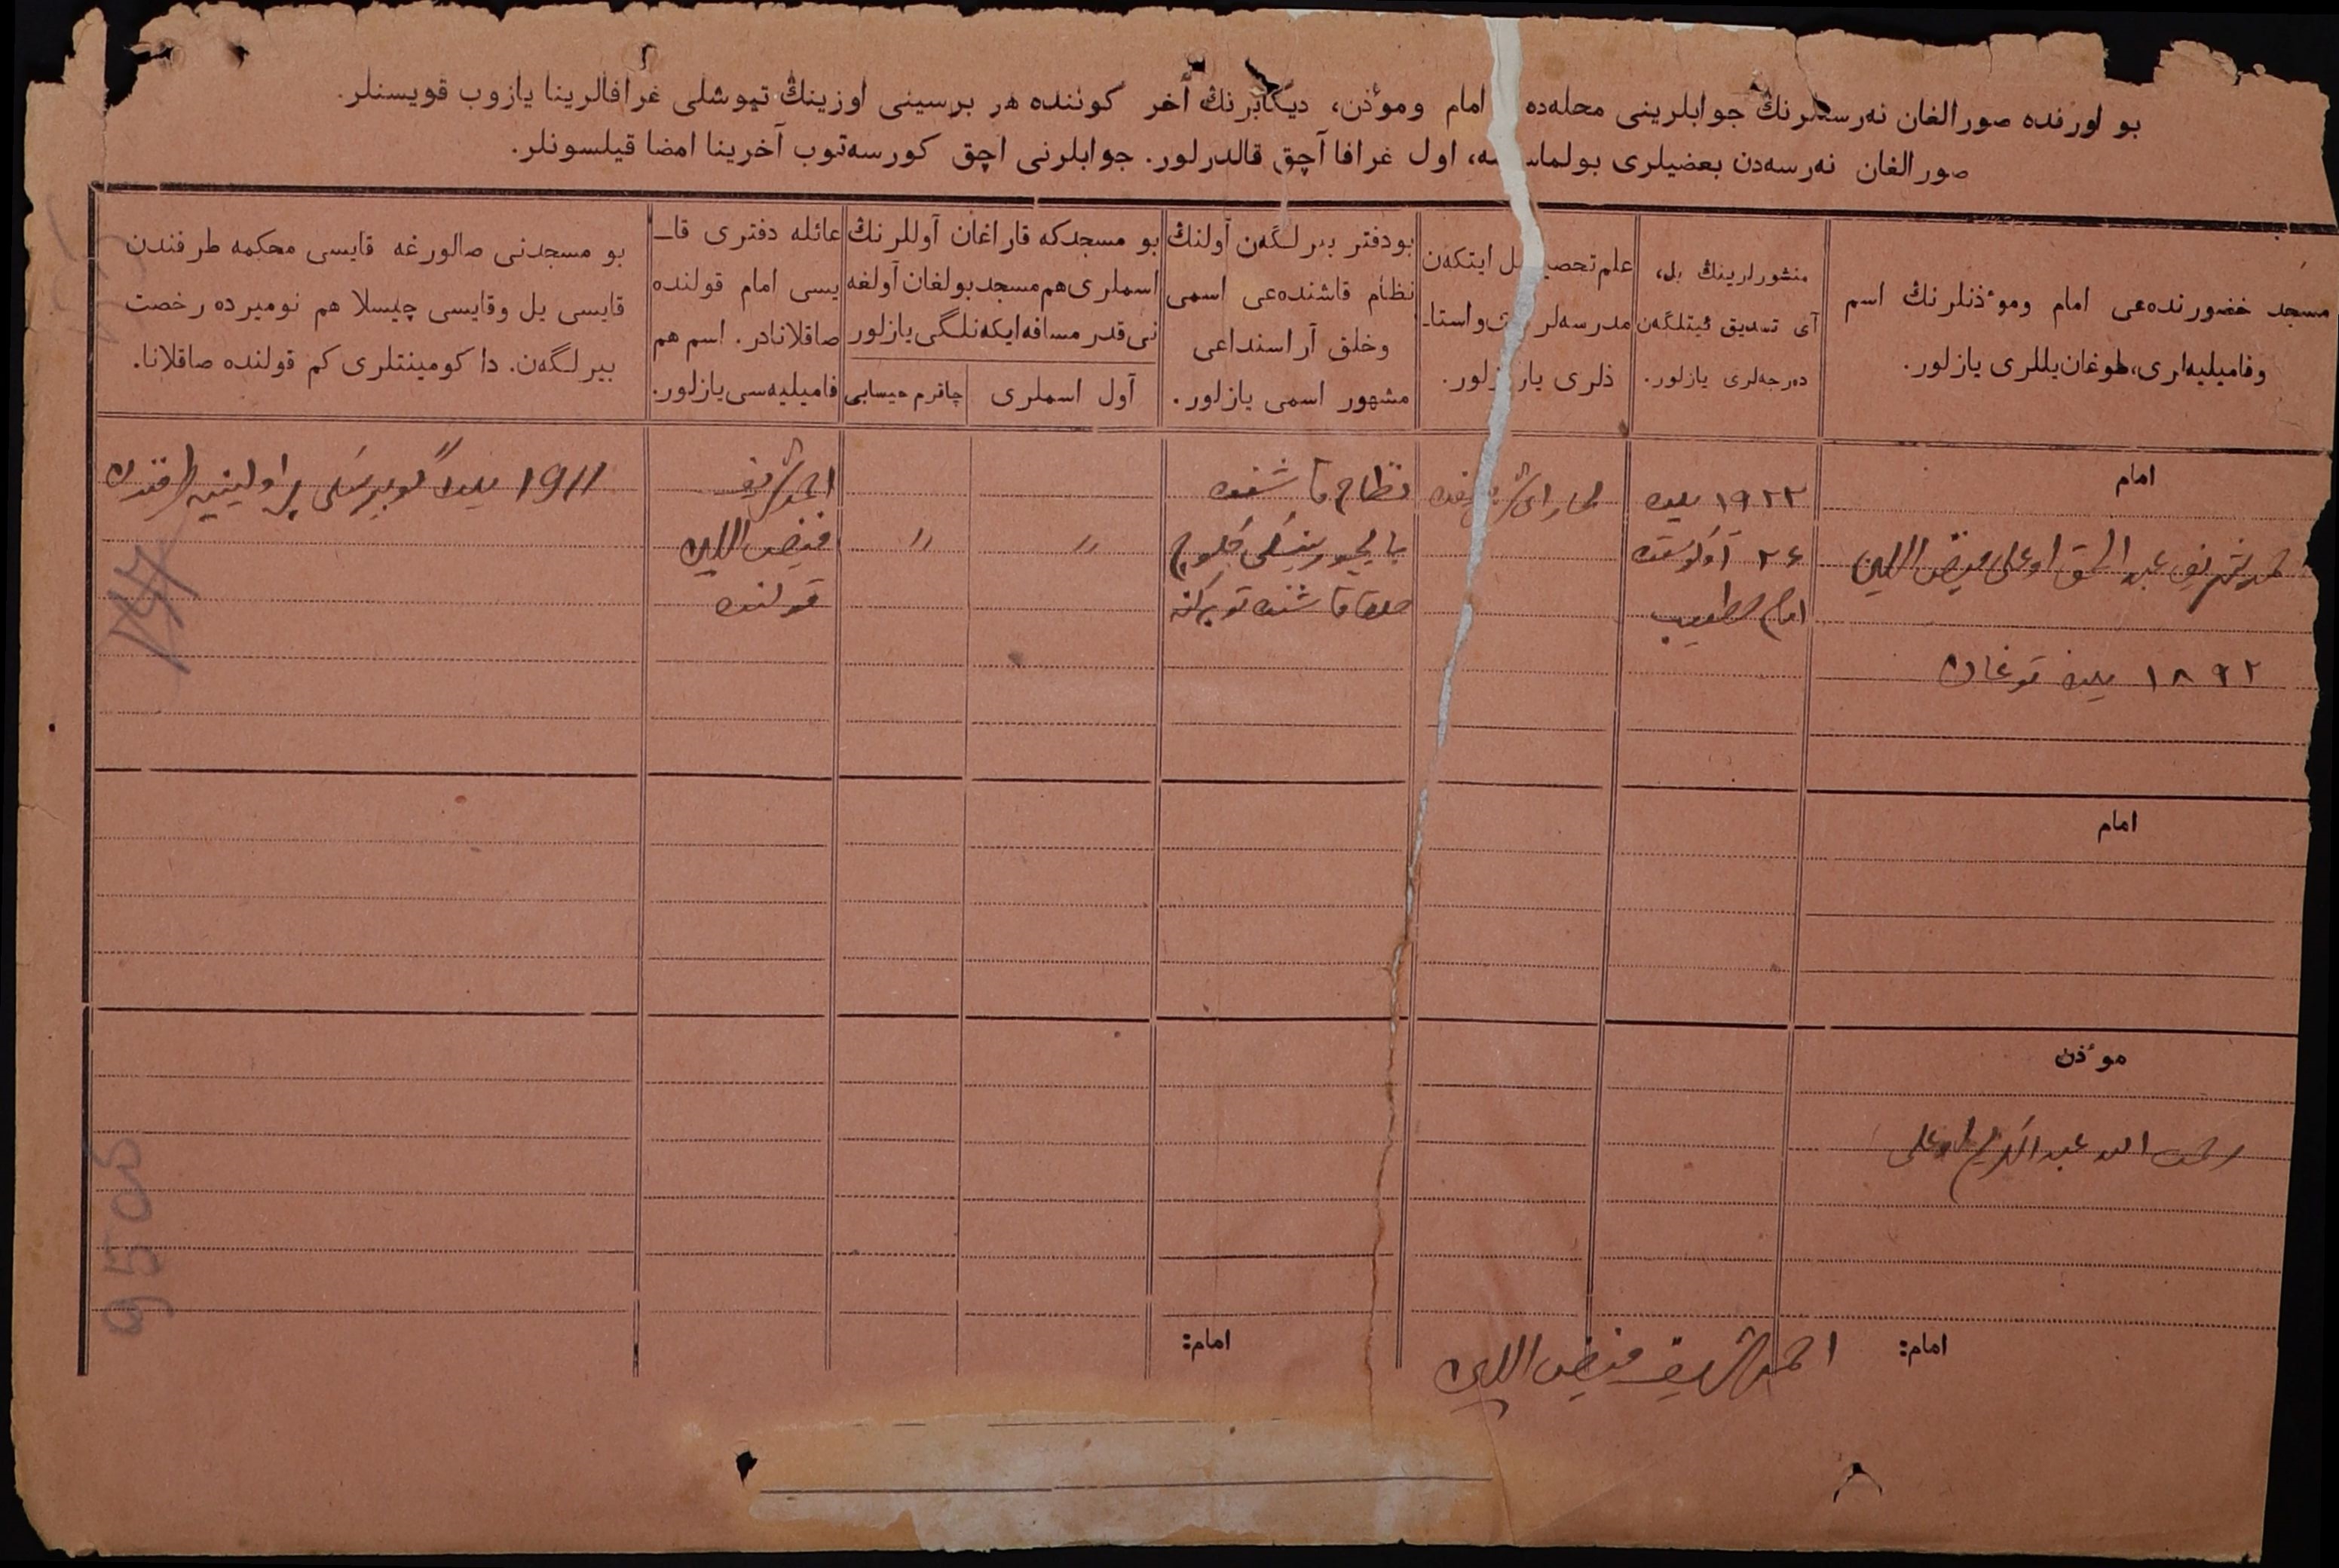 بو اورنده صورالغان نه‌رسه‌لرنڭ جوابلرینی محله‌ده امام وموٴذن، دیكابرنڭ آخر كوننده هر برسینی اوزینڭ تیوشلی غرافالرینا یازوب قویسنلر.
صورالغان نه‌رسه‌دن بعضیلری بولماسه، اول غرافا آچق قالدرلور. جوابلرنی اچق كورسه‌توب آخرینا امضا قیلسونلر.
مسجد حضورنده‌غی امام وموٴذنلرنڭ اسم
وفامیلیه‌لری، طوغان یللری یازلور.
منشورلرینڭ یل،
آی تصدیق ئیتلگه‌ن
ده‌رجه‌لری یازلور.
علم تحصیل ایتكه‌ن
مدرسه‌لری واستا-
ذلری یازلور.
بو دفتر بیرلگه‌ن آولنڭ
نظام قاشنده‌غی اسمی
وخلق آراسنداغی
مشهور اسمی یازلور.
بو مسجدكه قاراغان آوللرنڭ
اسملری هم مسجد بولغان آولغه
نی قدر مسافه ایكه‌نلگی یازلور
آول اسملری
چاقرم حسابی
عائله دفتری قا-
یسی امام قولنده
صاقلانادر. اسم هم
فامیلیه‌سی یازلور.
بو مسجدنی صالورغه قایسی محكمه طرفندن
قایسی یل وقایسی چیسلا هم نومیرده رخصت
بیرلگه‌ن. داكومینتلری كم قولنده صاقلانا.
امام
احمدشریف عبدالحق اوغلی فیض اللین
۱۸۹۲ یلده توغان
۱۹۲۳ یلده
۲۶ آوگوستده
امام خطیب
بخارای شریفده
نظام قاشنده
خلق قاشنده
"
"
احمدشریف
فیض اللین
قولنده
1911 یلده گوبیرنسكی پراولینیه طرفندن
امام
موٴذن
رحمت الله عبدالكریم اوغلی
امام:
احمدشریف فیض اللین
امام: